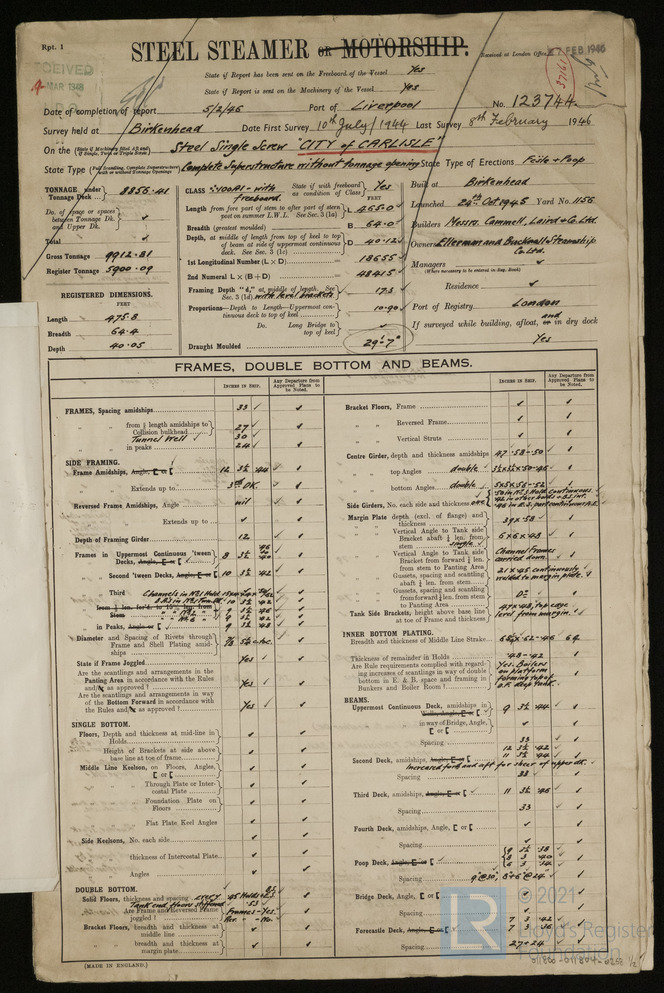 Rpt. 1
STEEL STEAMER OR MOTORSHIP.
Received at London Office 7 FEB 1946
RECEIVED
MAR 1946
State if Report has been sent on the Freeboard of the Vessel Yes
State if Report is sent on the Machinery of the Vessel Yes
Date of completion of report 5/2/46 Port of Liverpool No. 123744
Survey held at Birkenhead Date First Survey 10th July/1944 Last Survey 8th February 1946
On the Steel Single Screw "CITY of CARLISLE"
State Type Complete Superstructure without tonnage opening State Type of Erections Fo'c'le + Poop
TONNAGE under Tonnage Deck 8856.41
Do. of space or spaces between Tonnage Dk. and Upper Dk.
Total
Gross Tonnage 9912.81
Register Tonnage 5900.09
REGISTERED DIMENSIONS.
FEET
Length 475.8
Breadth 64.4
Depth 40.05
CLASS +100A1 - with freeboard. State if with freeboard as condition of Class Yes
FEET
Length from fore part of stem to after part of stern post on summer L.W.L. See Sec. 3 (1a) L 465.0
Breadth (greatest moulded) B 64.0
Depth, at middle of length from top of keel to top of beam at side of uppermost continuous deck. See Sec. 3 (1c) D 40.12
1st Longitudinal Number (L × D) 18655
2nd Numeral L × (B + D) 48415
Framing Depth "d," at middle of length. See Sec. 3 (1d) with level brackets 17.3
Proportions—Depth to Length—Uppermost continuous deck to top of keel 10.90
Do. Long Bridge to top of keel
Draught Moulded 29'-7"
Built at Birkenhead
Launched 24th Oct 1945 Yard No. 1156
Builders Messrs. Cammell, Laird & Co. Ltd.
Owners Ellerman and Bucknall Steamship Co. Ltd.
Managers
(Where necessary to be entered in Reg. Book)
Residence
Port of Registry London
If surveyed while building, afloat, or and in dry dock
Yes
FRAMES, DOUBLE BOTTOM AND BEAMS.
INCHES IN SHIP.
Any Departure from Approved Plans to be Noted.
FRAMES, Spacing amidships 33
" " from ⅗ length amidships to Collision bulkhead 27
Tunnel Well 30
" " in peaks 24
SIDE FRAMING.
Frame Amidships, Angle, E or [ 12 3½ .44
" " Extends up to 3rd DK.
Reversed Frame Amidships, Angle nil
" " Extends up to
Depth of Framing Girder 12
Frames in Uppermost Continuous 'tween Decks, Angle, E or [ 8 3½ .40
" Second 'tween Decks, Angle, E or [ 10 3½ .42
" Third
in Peaks, Angle or [ 9 3½ .48
Diameter and Spacing of Rivets through Frame and Shell Plating amidships ⅞
State if Frame Joggled Yes
Are the scantlings and arrangements in the Panting Area in accordance with the Rules and/or as approved? Yes
Are the scantlings and arrangements in way of the Bottom Forward in accordance with the Rules and/or as approved? Yes
SINGLE BOTTOM.
Floors, Depth and thickness at mid-line in Holds
" Height of Brackets at side above base line at toe of frame
Middle Line Keelson, on Floors, Angles, [ or [
" " Through Plate or Intercostal Plate
" " Foundation Plate on Floors
" " Flat Plate Keel Angles
Side Keelsons, No. each side
" " thickness of Intercostal Plate
" " Angles
DOUBLE BOTTOM.
Solid Floors, thickness and spacing every
Tank end floors stiffened
" " Are Frame and Reversed Frame joggled? Frames - Yes.
Bracket Floors, breadth and thickness at middle line
" " breadth and thickness at margin plate
Bracket Floors, Frame
" " Reversed Frame
" " Vertical Struts
Centre Girder, depth and thickness amidships 47 .58-.50
" " top Angles double 3½x3½x.50-.45
" " bottom Angles double 5x5x.56-.52
Side Girders, No. each side and thickness one
Margin Plate depth (excl. of flange) and thickness 39 x .58
" " Vertical Angle to Tank side Bracket abaft ¼ len. from stem single 6x6x.48
" " Vertical Angle to Tank side Bracket from forward ¼ len. from stem to Panting Area Channel frames carried down
" " Gussets, spacing and scantling abaft ¼ len. from stem 21 x .45 continuously welded to margin plate.
" " Gussets, spacing and scantling from forward ¼ len. from stem to Panting Area Do
Tank Side Brackets, height above base line at toe of Frame and thickness 47x.48, top edge level from margin.
INNER BOTTOM PLATING.
Breadth and thickness of Middle Line Strake
Thickness of remainder in Holds .48-.42
Are Rule requirements complied with regarding increases of scantlings in way of double bottom in E. & B. space and framing in Bunkers and Boiler Room? Yes. Boilers on platform forming top of O.F. deep tank.
BEAMS.
Uppermost Continuous Deck, amidships in Wells, Angle, E or [ 9 3½ .44
" " in way of Bridge, Angle, [ or [
" " Spacing 33
Second Deck, amidships, Angle, E or [ 12 3½ .42
11 3½ .44
Increased for'd and aft for sheer of upper dk.
Spacing 33
Third Deck, amidships, Angle, E or [ 11 3½ .46
" " Spacing 33
Fourth Deck, amidships, Angle, [ or [
" " Spacing
Poop Deck, Angle, E or [ 9 3½ .38
8 3 .40
6 3 .34
" " Spacing
Bridge Deck, Angle, [ or [
" " Spacing
Forecastle Deck, Angle, E or [ 7 3 .42
7 3 .36
" " Spacing 27+24
(MADE IN ENGLAND.)
© 2021
LR
Lloyd's Register
Foundation